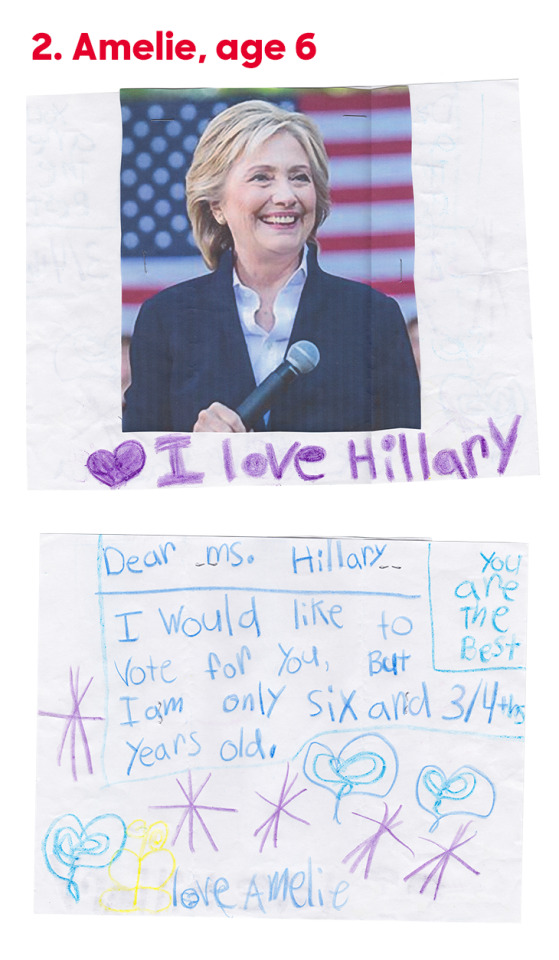 2. Amelie, age 6
I love Hillary
Dear ms. Hillary
You
are
The
Best
I would like to
vote for you, But
I am only six and 3/4ths
years old.
love Amelie